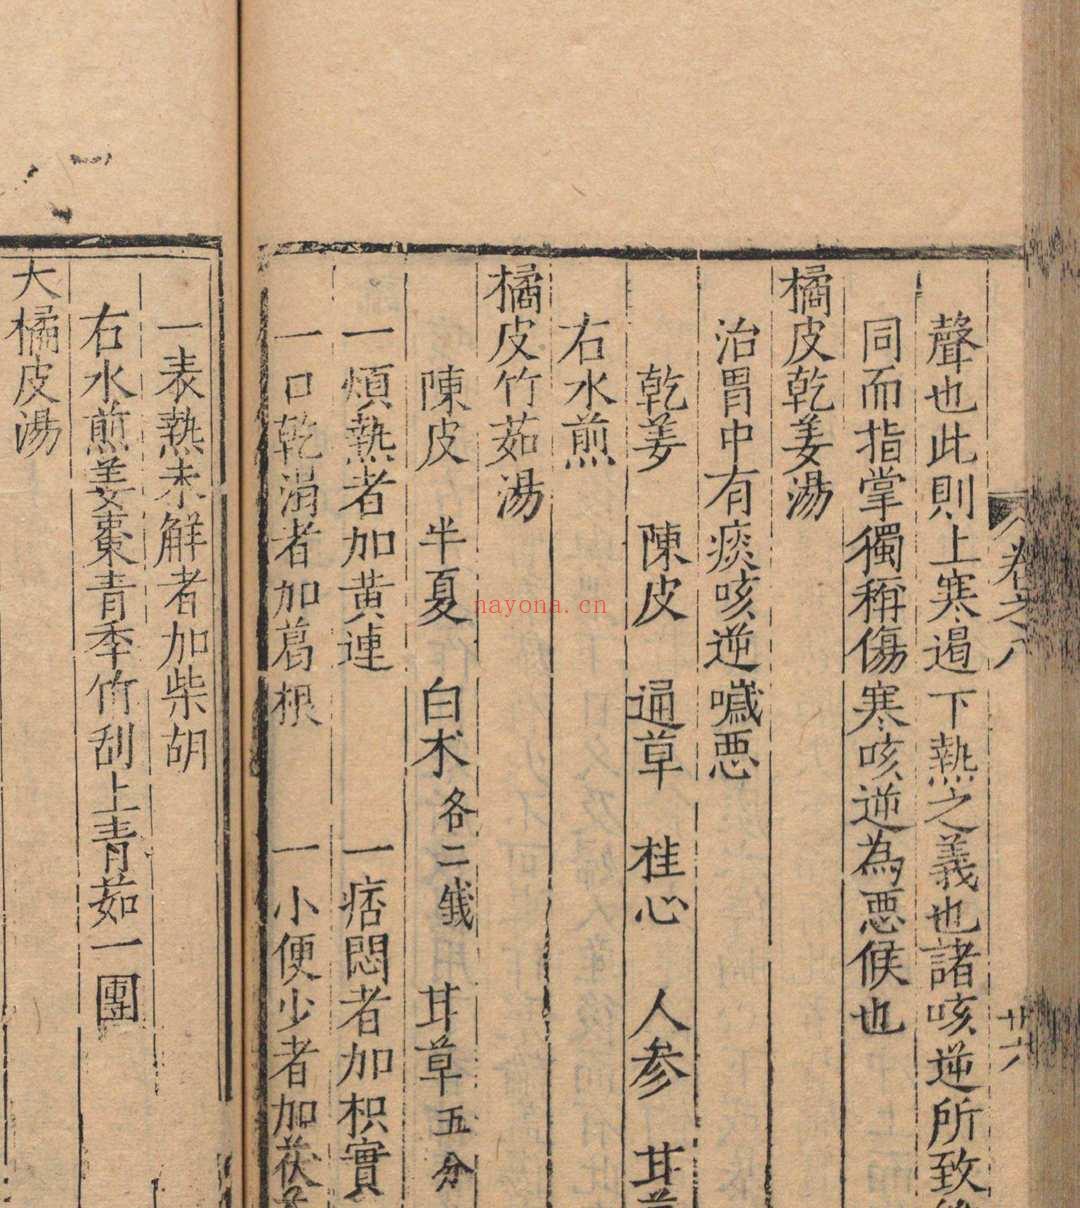 卷之八
廿六
聲也此則上寒遏下熱之義也諸咳逆所致
同而指掌獨稱傷寒咳逆為惡候也
橘皮乾姜湯
治胃中有痰咳逆噦惡
乾姜 陳皮 通草 桂心 人參 甘草
右水煎
橘皮竹茹湯
陳皮 半夏 白朮各二錢 甘草五分
一煩熱者加黃連 一痞悶者加枳實
一口乾渴者加葛根 一小便少者加茯
一表熱未解者加柴胡
右水煎姜棗青季竹刮上青茹一團
大橘皮湯
nayona.cn